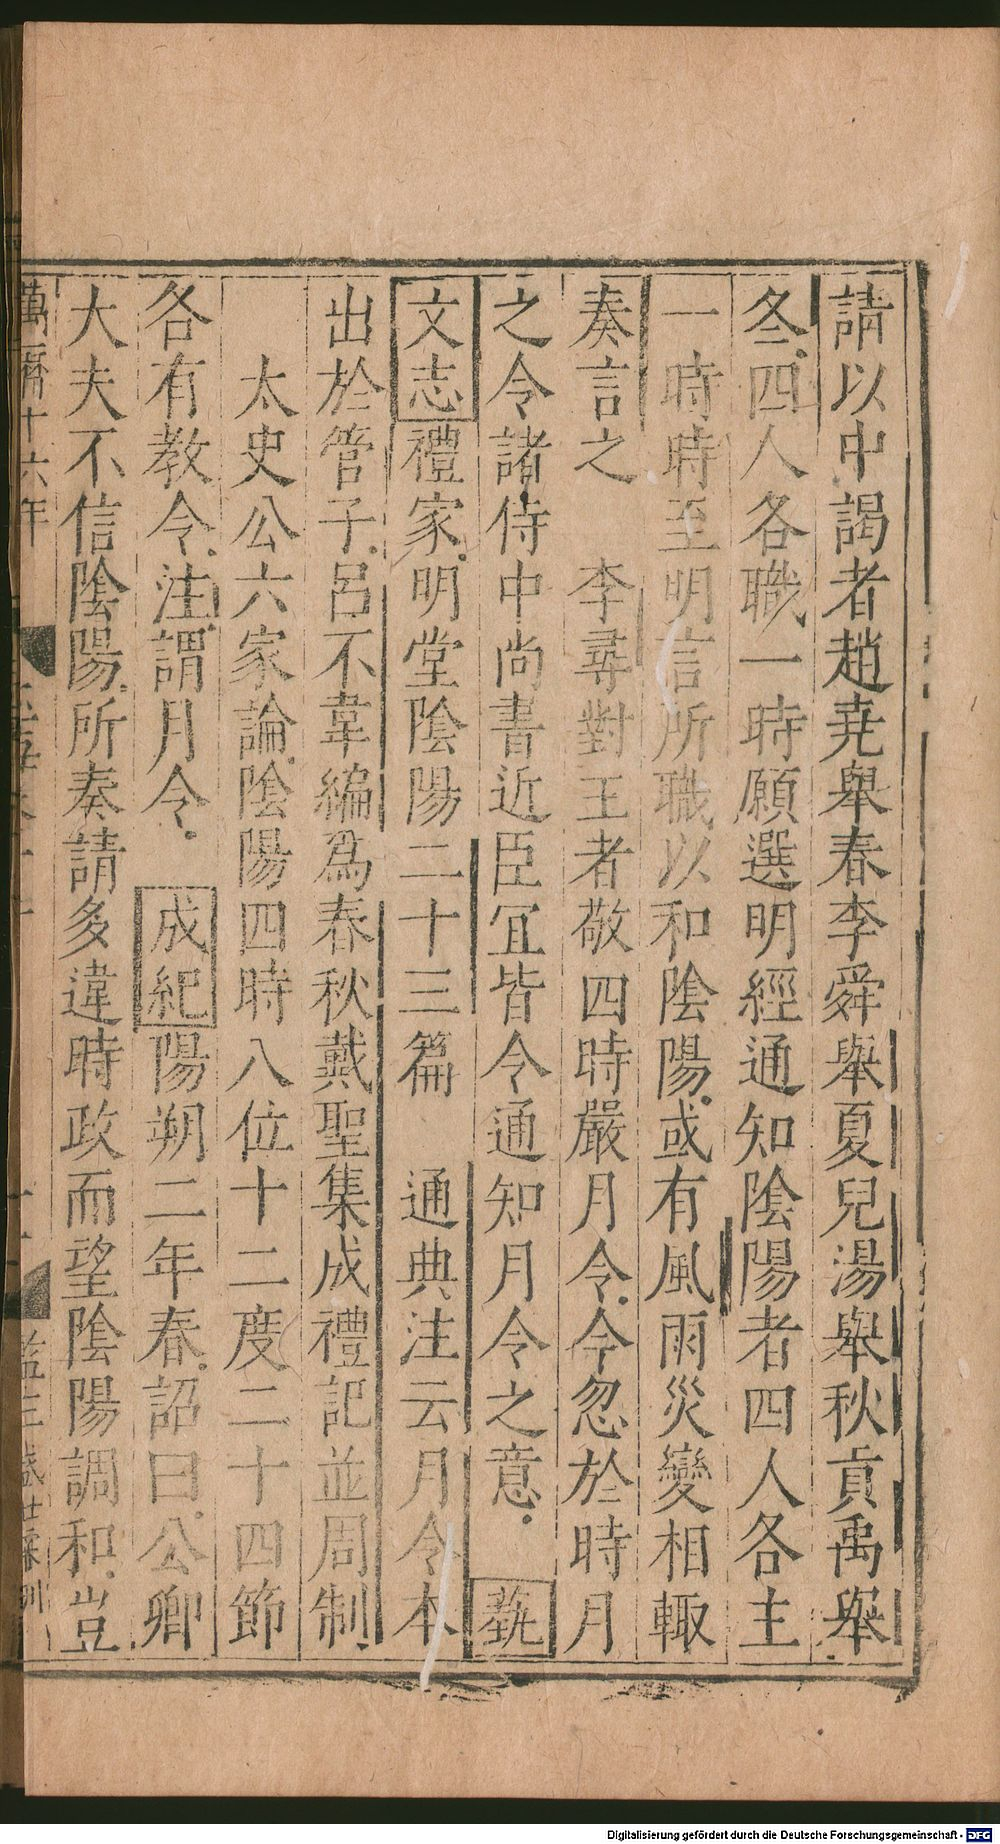 請以中謁者趙堯舉春李舜舉夏兒湯舉秋貢禹舉
冬四人各職一時願選明經通知陰陽者四人各主
一時時至明言所職以和陰陽或有風雨災變相輙
奏言之　李尋對王者敬四時嚴月令今忽於時月
之令諸侍中尚書近臣宜皆令通知月令之意　蓺
文志禮家明堂陰陽二十三篇　通典注云月令本
出於管子呂不韋編爲春秋戴聖集成禮記並周制
太史公六家論陰陽四時八位十二度二十四節
各有教令注謂月令　成紀陽朔二年春詔曰公卿
大夫不信陰陽所奏請多違時政而望陰陽調和豈
萬曆十六年
Digitalisierung gefördert durch die Deutsche Forschungsgemeinschaft - DFG